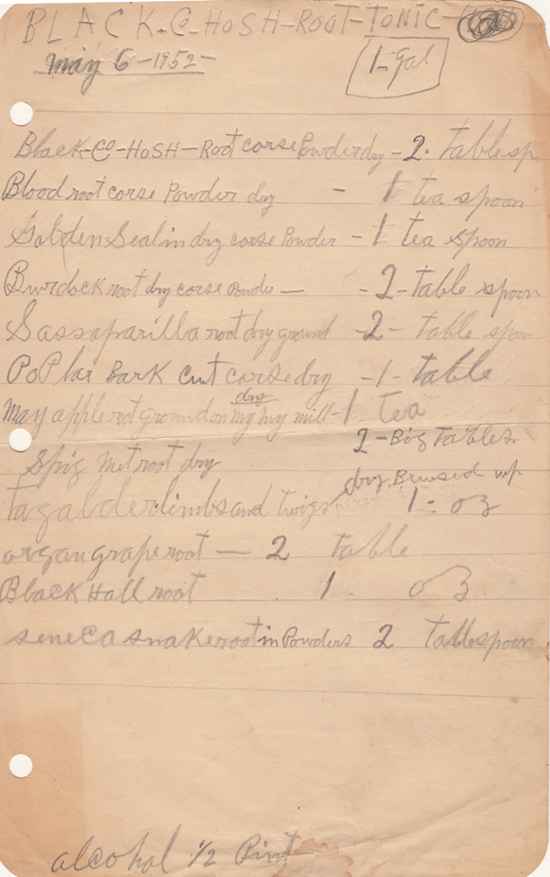 BLACK-Co-HoSH-RooT-TONIC-
May 6-1952-
1-Gal
Black-Co-HoSH-Root corse Powder dry - 2. Tablesp
Blood root corse Powder dry - 1 tea spoon
Golden Seal in dry corse Powder - 1 tea spoon
Burdock root dry corse Powde - - 2 - table spoon
Sassaparilla root dry ground - 2 - table spoon
PoPlar Bark Cut corse dry - 1 - table
dry
May apple root ground on my hny mill - 1 tea
2 - Big Tables.
Spignet root dry
dry Brused up
Tagalder limbs and twigs 1 - oz
organ grape root - 2 table
Black Hall root 1. oz
seneca snake root in Powders 2 tablespoon
alcohol 1/2 Pint